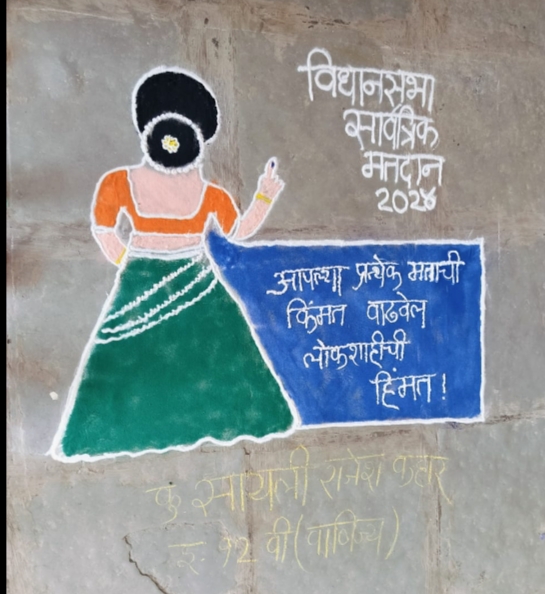 विधानसभा
सार्वत्रिक
मतदान
२०२४
आपल्या प्रत्येक मताची
किंमत वाढवेल
लोकशाहीची
हिंमत !
कु सायली राजेश कहार
इ. १२ वी (वाणिज्य)